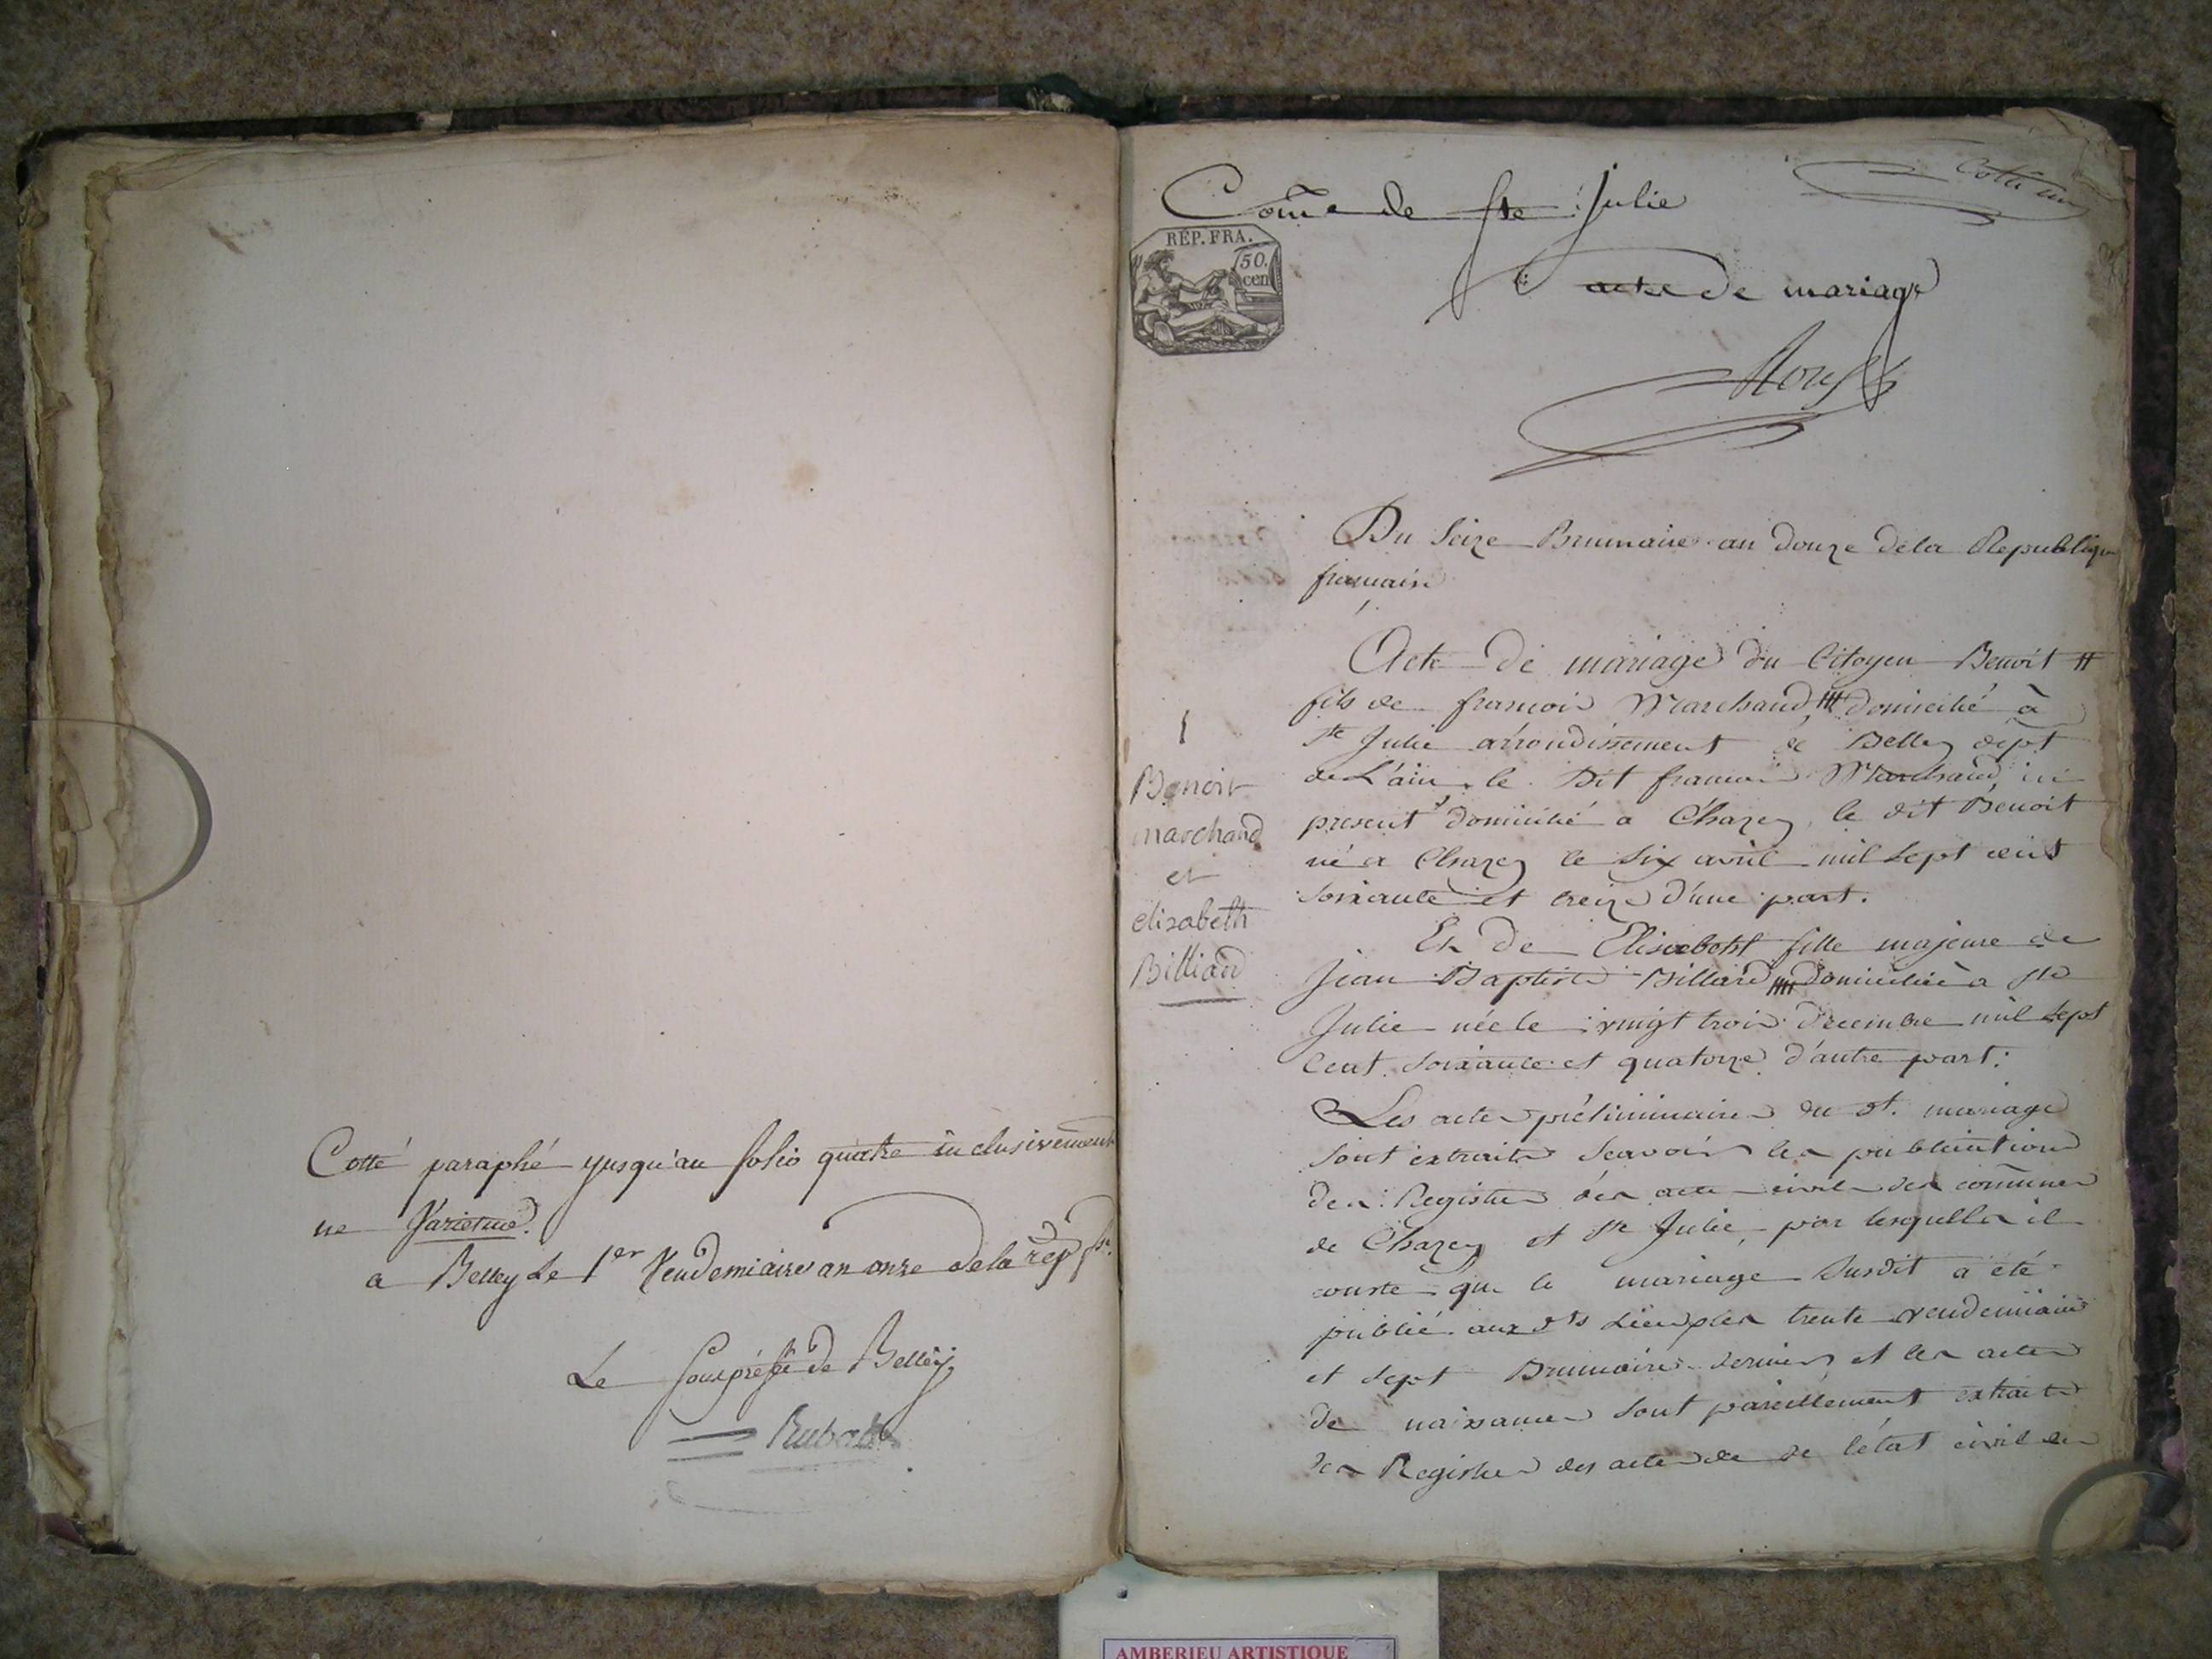 Cotté paraphé jusqu'au folio quatre inclusivement
ne Varietur.
a Belley Le 1er Vendemiaire an onze de la rep. fse.
Le Souspréfet de Belley
Rubat
Cotté un
Comē de Ste Julie
REP. FRA.
50.
cen
acte de mariage
Du Seize Brumaire an douze dela Republique
francaise
Acte de mariage du Citoyen Benoit
fils de francois Marchand domicilié à
Ste Julie arrondissement de Belley dept
de L'ain, le Dit francois Marchand ici
present domicilié a Chazey, le dit Benoit
né a Chazey le six avril mil sept cent
soixante et treize d'une part.
Et de Elisabeht fille majeure de
Jean Baptiste Billiard domiciliée à Ste
Julie née le vingt trois decembre mil sept
Cent soixante et quatorze d'autre part.
Les actes préliminaires du dt. mariage
sont extraits scavoir les publication
des Registres des actes civils des comūnes
de Chazey et Ste Julie, par lesquelles il
conste que le mariage susdit a été
publié aux dts Lieux les trente vendemiaire
et sept Brumaire dernier et les actes
de naissances sont pareillement extraits
des Registres des actes de de l'état civil de
1
Benoit
marchand
et
elizabeth
Billiard
AMBERIEU ARTISTIQUE